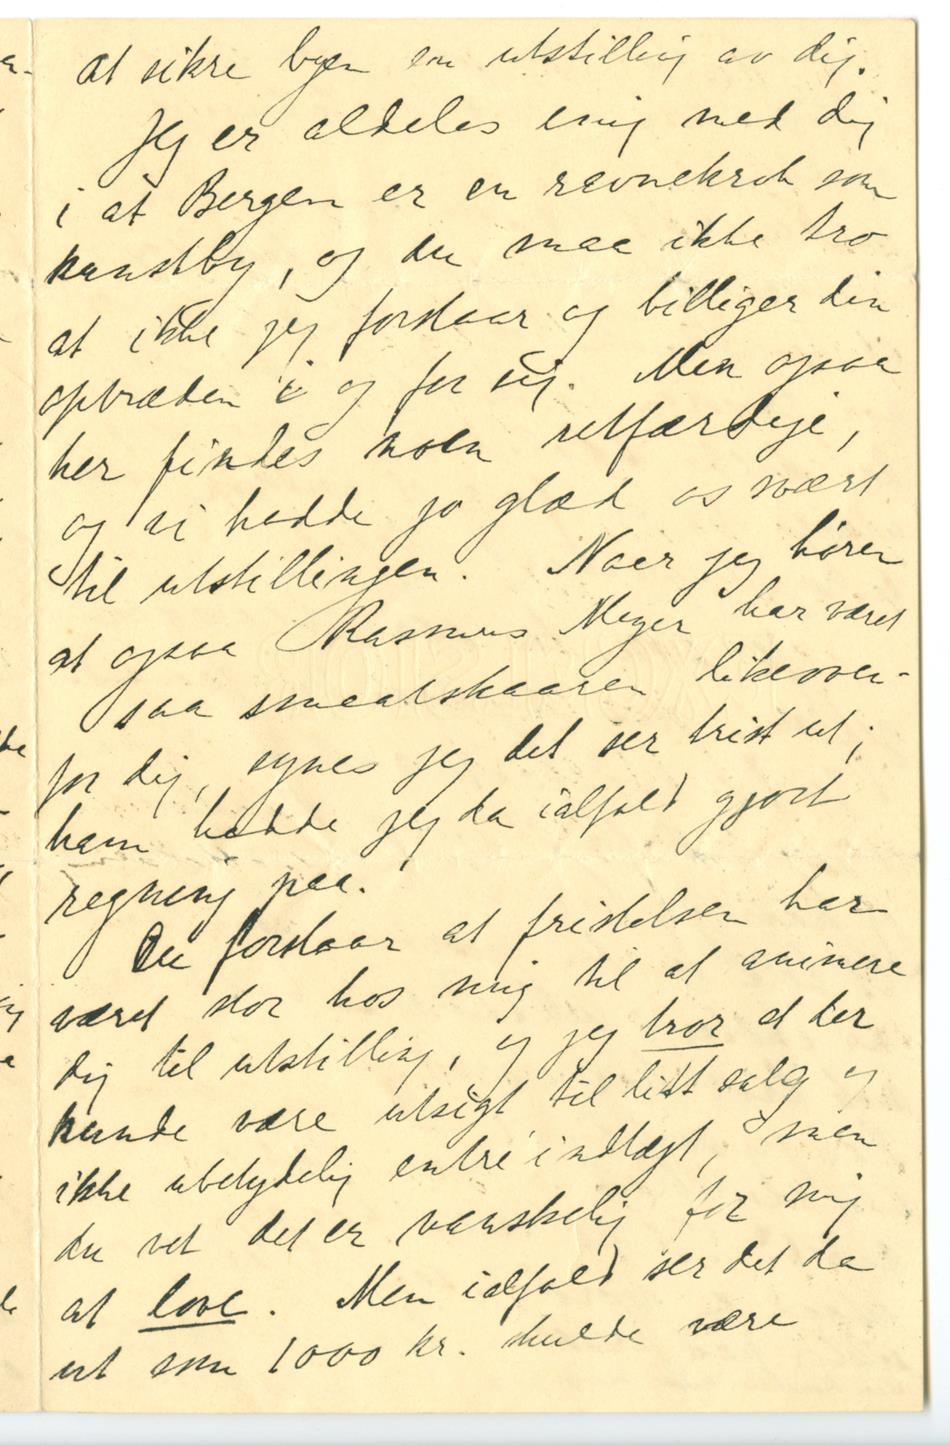 at sikre byen en utstilling av dig.
Jeg er aldeles enig med dig
i at Bergen er en ravnekrok som
kunstby, og du maa ikke tro
at ikke jeg forstaar og billiger din
optræden i og for sig. Men ogsaa
her findes noen retfærdige,
og vi hadde jo glæd os svært
til utstillingen. Naar jeg hører
at ogsaa Rasmus Meyer har været
saa smaatskaaren likeover-
for dig, synes jeg det ser trist ut;
ham hadde jeg da ialfald gjort
regning paa.
Du forstaar at fristelsen har
været stor hos mig til at animere
dig til utstilling, og jeg tror at der
kunde være utsigt til litt salg og
ikke ubetydelig entréindtægt, men
du vet det er vanskelig for mig
at love. Men ialfald ser det da
ut som 1000 kr. skulde være